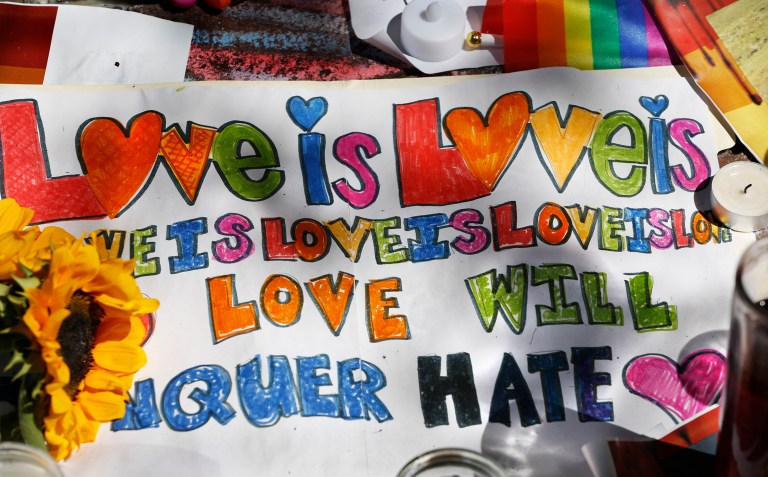 Love is Love is
VE IS LOVE IS LOVE IS LOVE
LOVE WILL
NQUER HATE